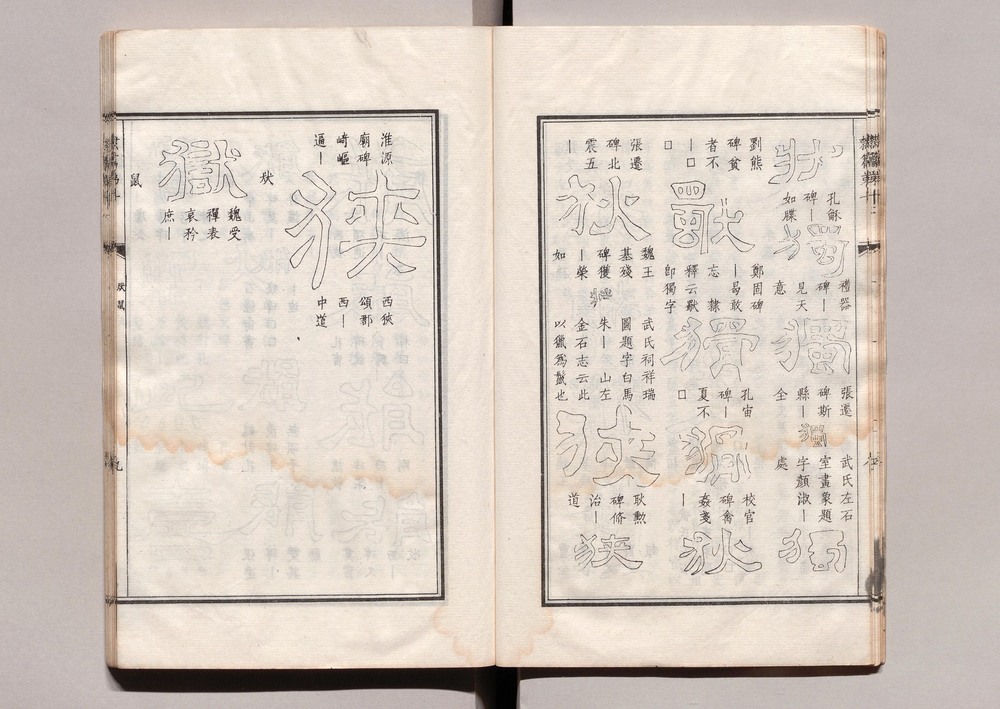 狀
孔龢
碑｜
如牒
獨
禮器
碑｜
見天
意
獨
張遷
碑斯
縣｜
全
獨
武氏左石
室畫象題
字顏淑｜
處
獨
劉熊
碑貧
者不
｜□
□
鄭固碑
｜曷敢
忘　隸
釋云獸
即獨字
獨
孔宙
碑｜
夏不
□
校官
碑禽
姦戔
｜
狄
張遷
碑北
震五
｜
狄
魏王
基殘
碑獲
｜榮
如
武氏祠祥瑞
圖題字白馬
朱｜　山左
金石志云此
以獵為鬣也
狹
耿勳
碑脩
治｜
道
狹
淮源
廟碑
崎嶇
逼｜
狹
西狹
頌郡
西｜
中道
㹜
獄
魏受
禪表
哀矜
庶｜
鼠